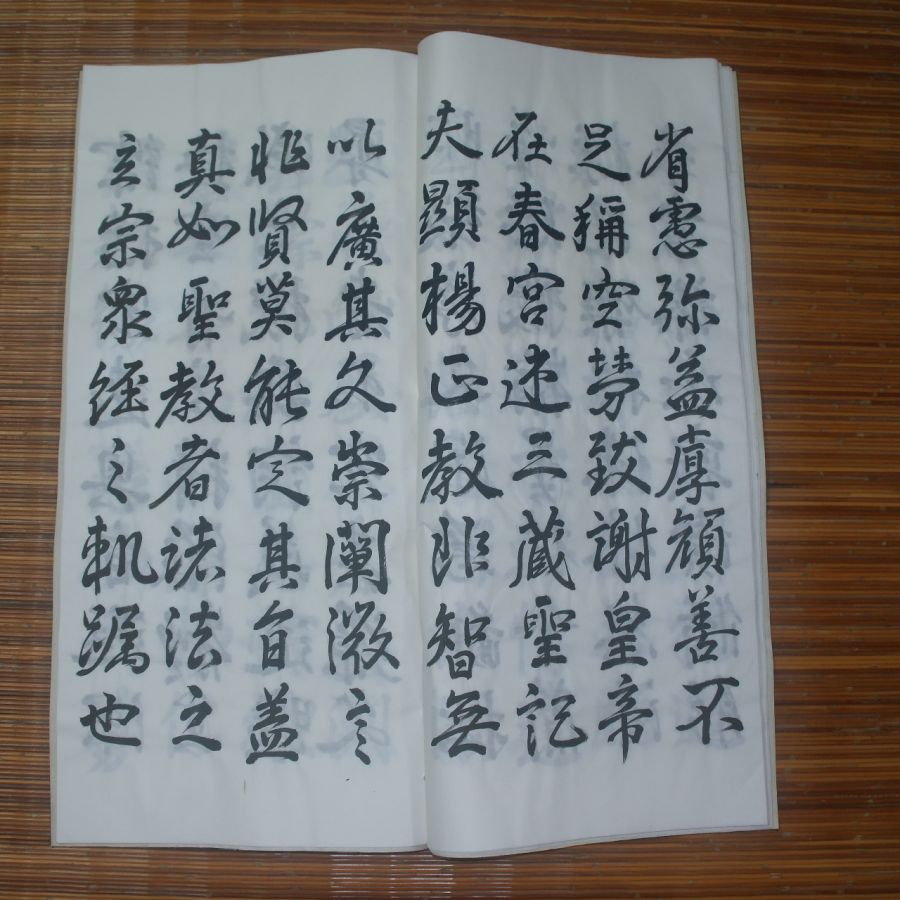 省慮弥益厚顔善不
足稱空勞致謝皇帝
在春宮述三藏聖記
夫顯楊正教非智無
以廣其文崇闡微言
非賢莫能定其旨蓋
真如聖教者諸法之
玄宗衆經之軌躅也